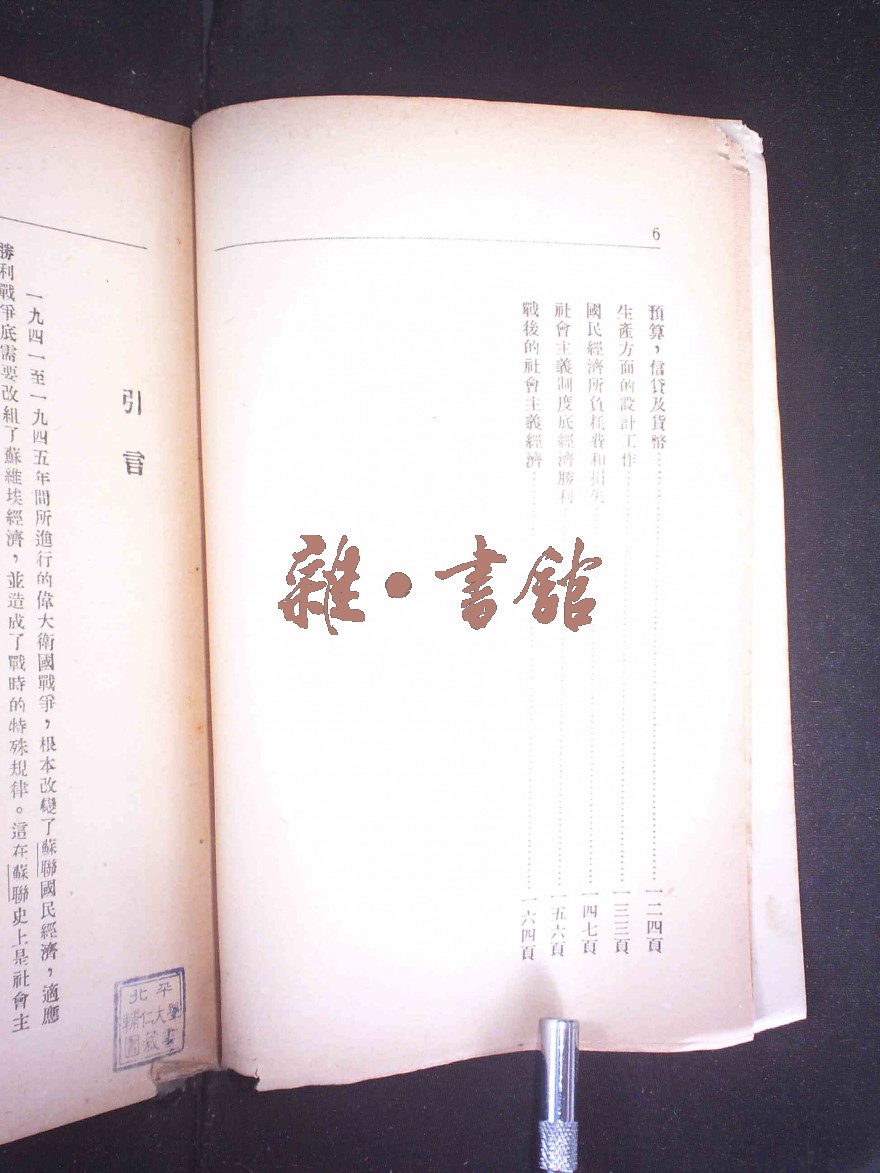 6
預算，信貸及貨幣……一二四頁
生產方面的設計工作……一三三頁
國民經濟所負耗費和損失……一四七頁
社會主義制度底經濟勝利……一五六頁
戰後的社會主義經濟……一六四頁
雜·書館
引言
一九四一至一九四五年間所進行的偉大衛國戰爭，根本改變了蘇聯國民經濟，適應
勝利戰爭底需要改組了蘇維埃經濟，並造成了戰時的特殊規律。這在蘇聯史上是社會主
北平
輔仁大學
圖藏書